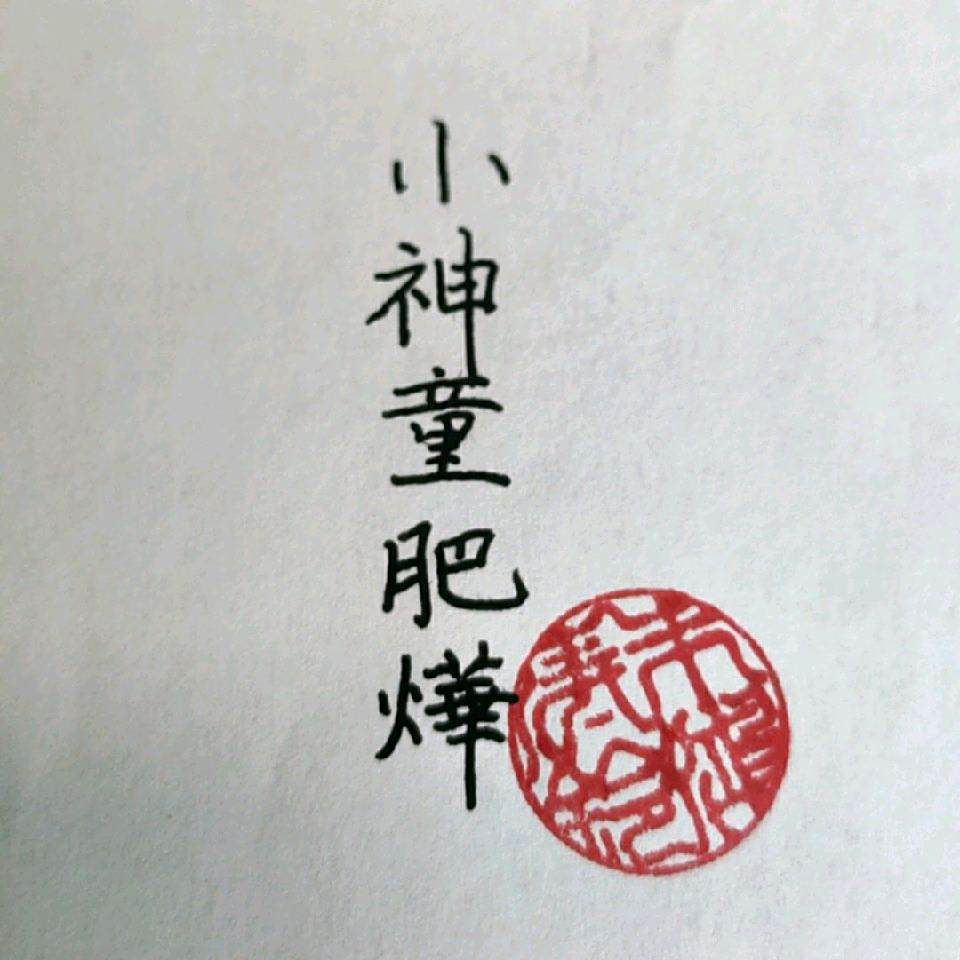 小神童肥燁